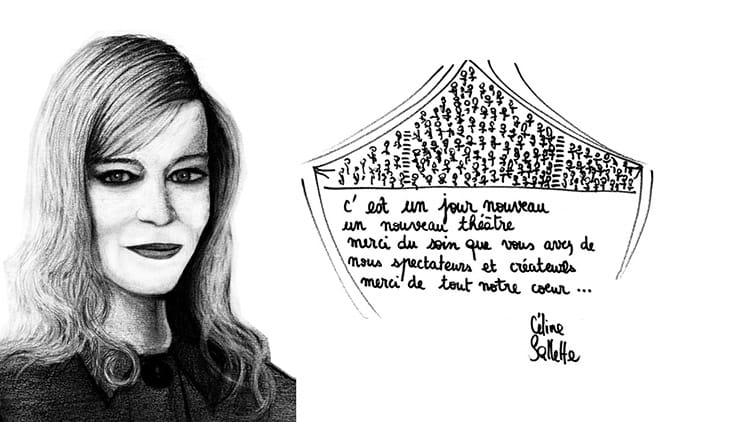 c'est un jour nouveau
un nouveau théâtre
merci du soin que vous avez de
nous spectateurs et créateurs
merci de tout notre coeur ...
Céline
Sallette